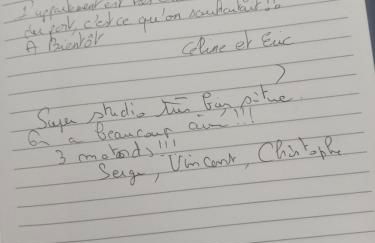 L'appartement est
du port c'est ce qu'on souhaitait!!
A Bientôt
Celine et Eric
Super studio très bien
On a beaucoup aimé!!!
3 motards!!!
Serge, Vincent, Christophe